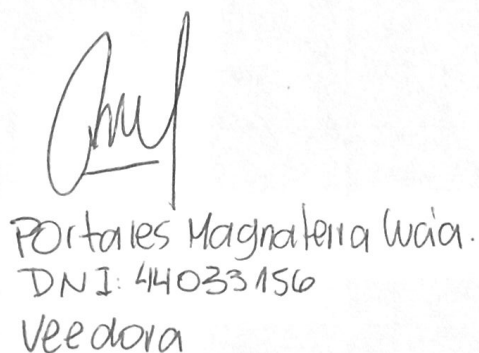 Portales Magnaterra Lucía.
DNI: 44033156
Veedora